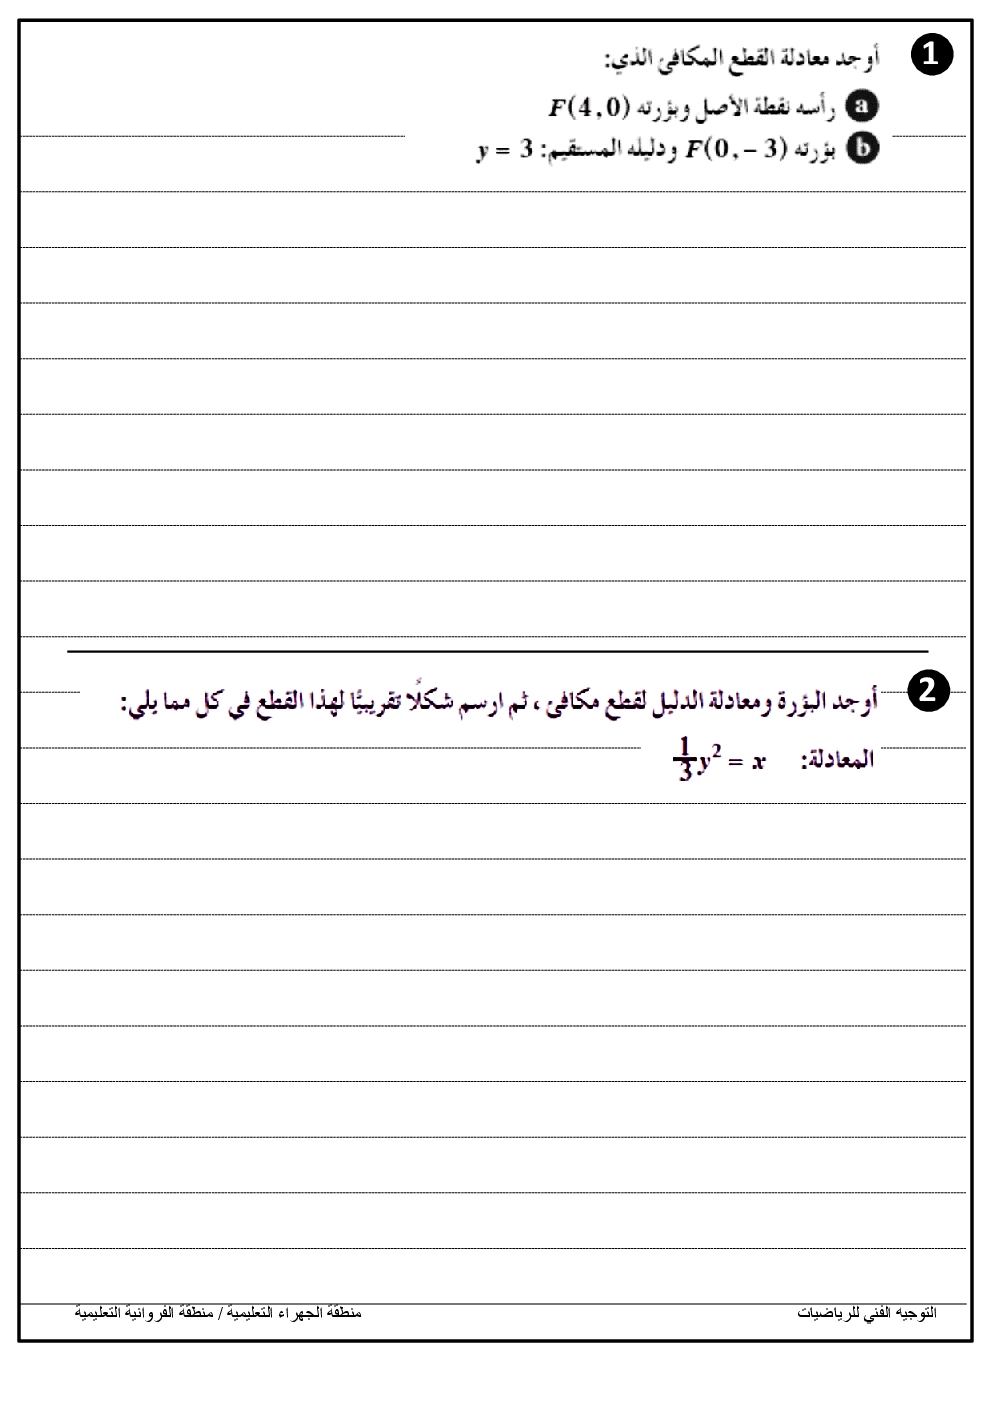 1 أوجد معادلة القطع المكافئ الذي:
a رأسه نقطة الأصل وبؤرته F(4,0)
b بؤرته F(0,-3) ودليله المستقيم: y = 3
2 أوجد البؤرة ومعادلة الدليل لقطع مكافئ ، ثم ارسم شكلًا تقريبيًّا لهذا القطع في كل مما يلي:
المعادلة: 1/3 y² = x
التوجيه الفني للرياضيات منطقة الجهراء التعليمية / منطقة الفروانية التعليمية